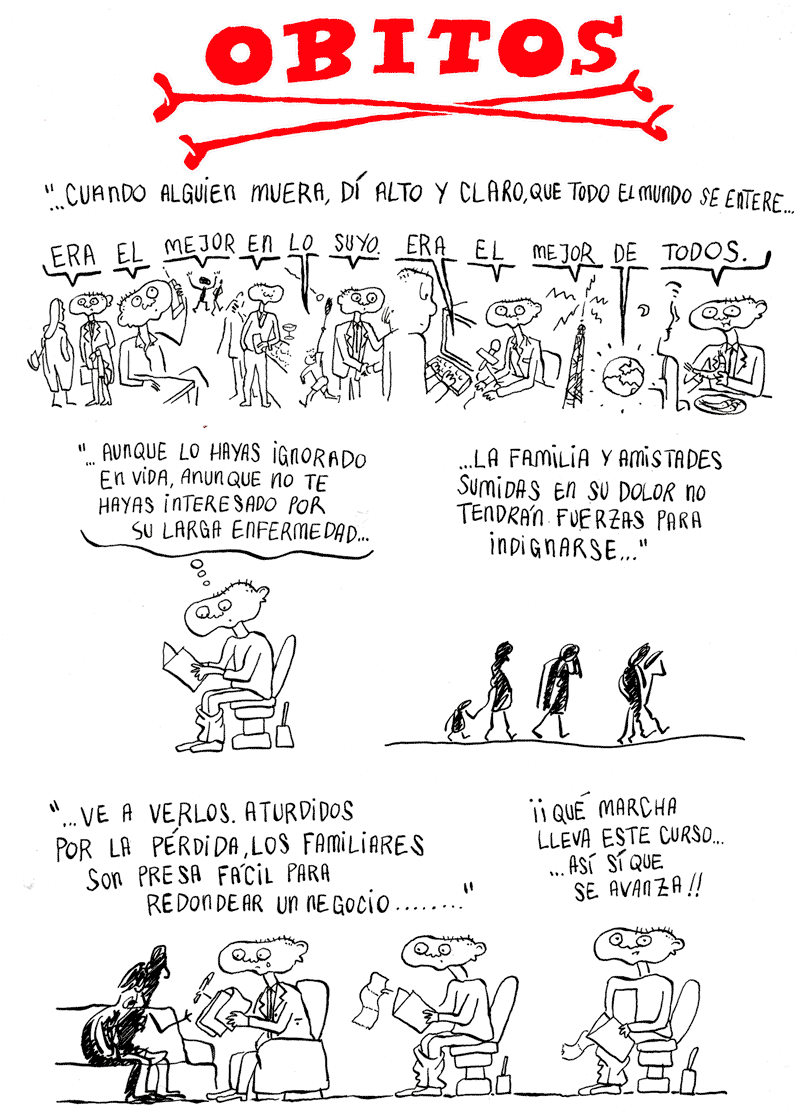 OBITOS
"...CUANDO ALGUIEN MUERA, DÍ ALTO Y CLARO, QUE TODO EL MUNDO SE ENTERE...
ERA EL MEJOR EN LO SUYO. ERA EL MEJOR DE TODOS.
"... AUNQUE LO HAYAS IGNORADO
EN VIDA, ANUNQUE NO TE
HAYAS INTERESADO POR
SU LARGA ENFERMEDAD...
...LA FAMILIA Y AMISTADES
SUMIDAS EN SU DOLOR NO
TENDRÁN FUERZAS PARA
INDIGNARSE..."
"...VE A VERLOS. ATURDIDOS
POR LA PÉRDIDA, LOS FAMILIARES
SON PRESA FÁCIL PARA
REDONDEAR UN NEGOCIO........"
¡¡QUÉ MARCHA
LLEVA ESTE CURSO...
...ASÍ SÍ QUE
SE AVANZA!!